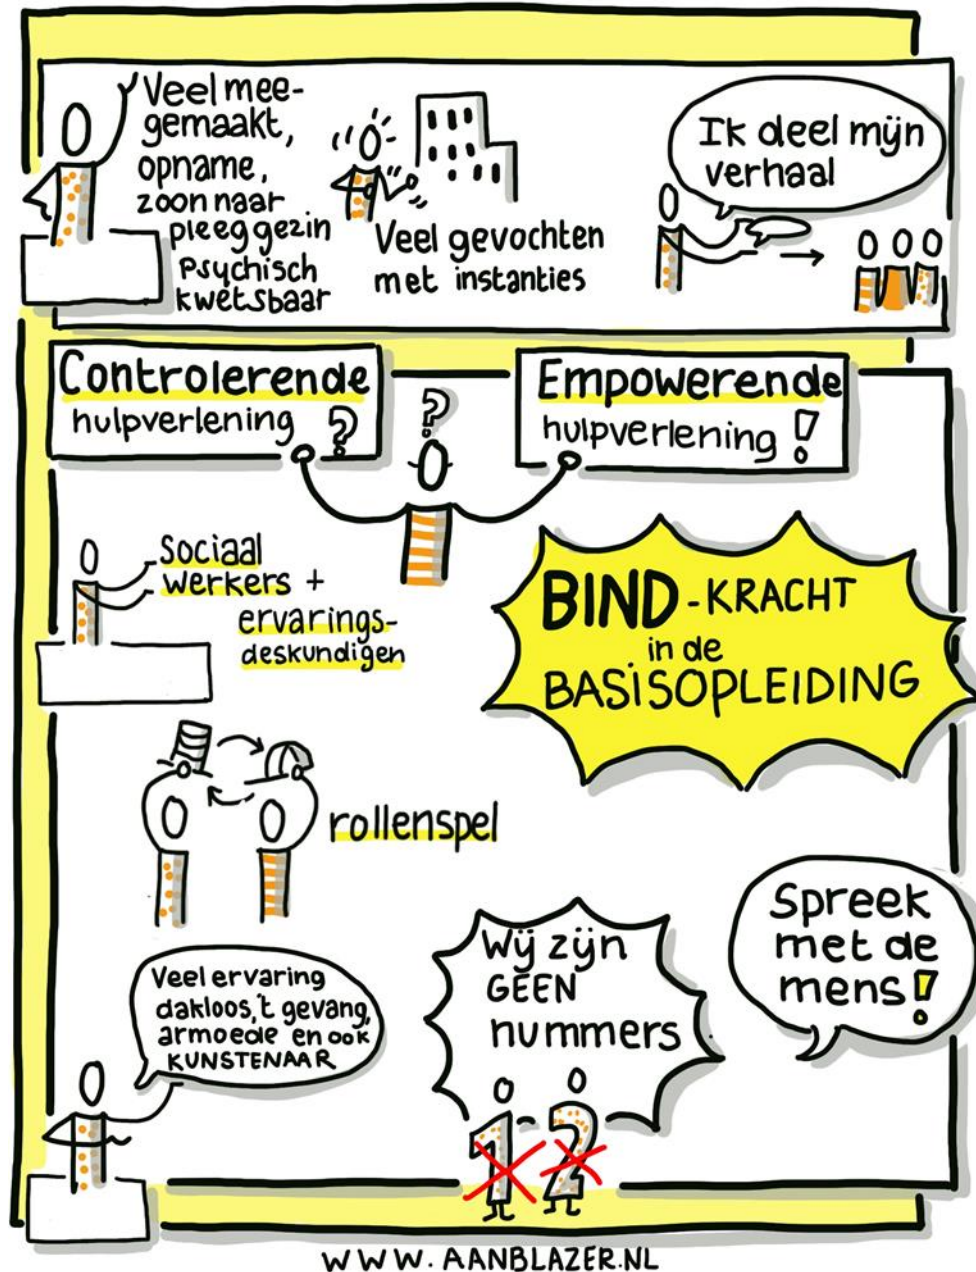 Veel mee-
gemaakt,
opname,
zoon naar
pleeggezin
Psychisch
kwetsbaar
Veel gevochten
met instanties
Ik deel mijn
verhaal
Controlerende
hulpverlening ?
?
Empowerende
hulpverlening !
Sociaal
werkers +
ervarings-
deskundigen
BIND-KRACHT
in de
BASISOPLEIDING
rollenspel
Veel ervaring
dakloos, 't gevang,
armoede en ook
KUNSTENAAR
Wij zijn
GEEN
nummers
1 2
Spreek
met de
mens!
WWW.AANBLAZER.NL